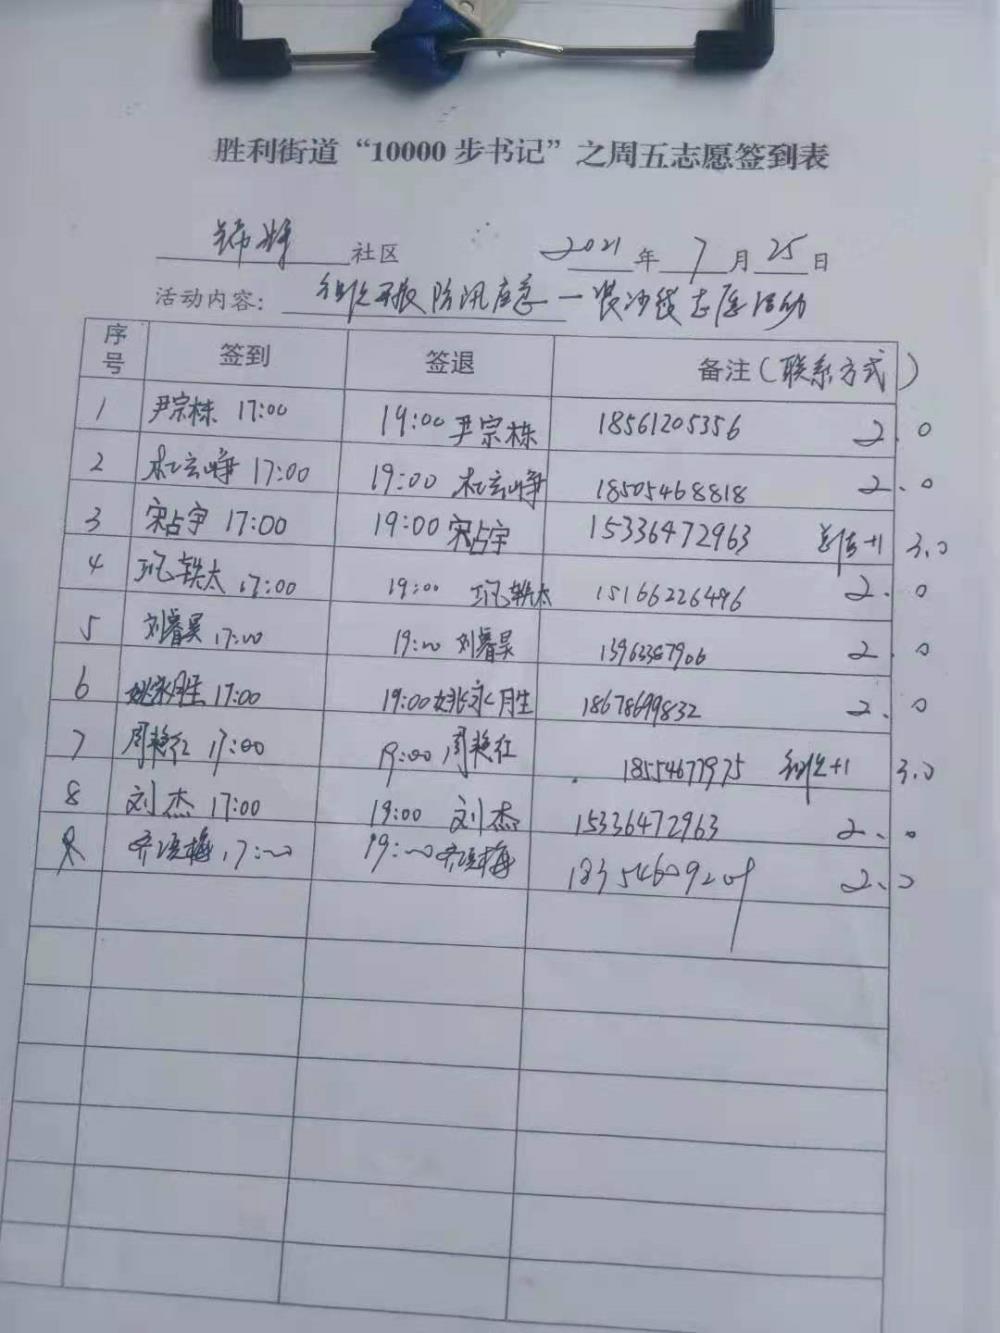 胜利街道“10000步书记”之周五志愿签到表
社区 2021年7月25日
活动内容： 组织开展防汛应急一装沙袋志愿活动
序号 签到 签退 备注(联系方式)
1 尹宗栋 17:00 19:00 尹宗栋 18561205356 2.0
2 杜云峥 17:00 19:00 杜云峥 18505468818 2.0
3 宋占宇 17:00 19:00 宋占宇 15336472963 +1 3.0
4 巩轶太 17:00 19:00 巩轶太 15166226496 2.0
5 刘睿昊 17:00 19:00 刘睿昊 2.0
6 姚永胜 17:00 19:00 姚永胜 18678699832 2.0
7 周艳红 17:00 19:00 周艳红 18554677975 组织+1 3.0
8 刘杰 17:00 19:00 刘杰 15336472963 2.0
17:00 19:00 2.0